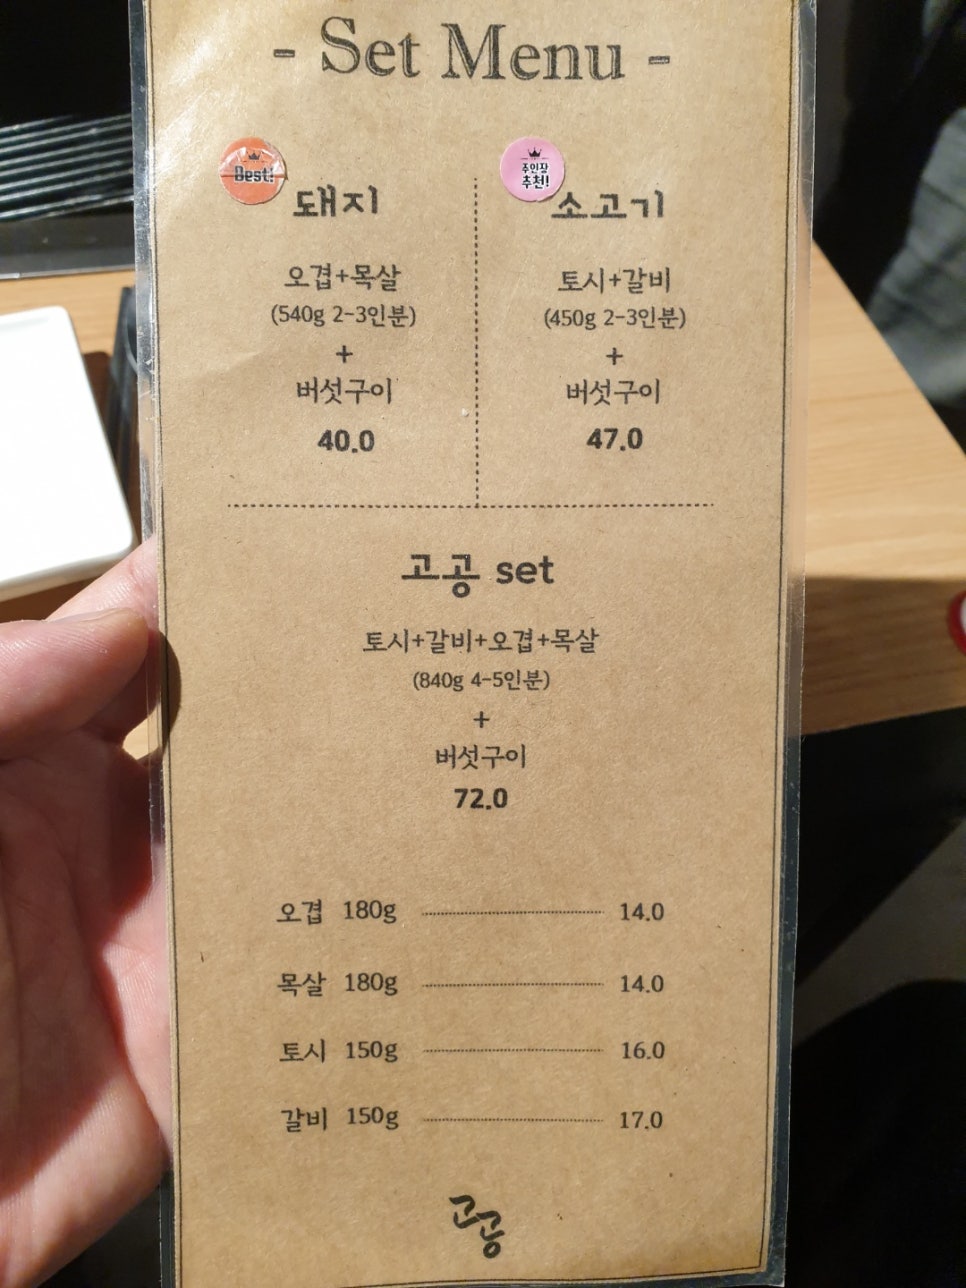 - Set Menu -
Best!
돼지
오겹+목살
(540g 2-3인분)
+
버섯구이
40.0
주인장
추천!
소고기
토시+갈비
(450g 2-3인분)
+
버섯구이
47.0
고공 set
토시+갈비+오겹+목살
(840g 4-5인분)
+
버섯구이
72.0
오겹 180g 14.0
목살 180g 14.0
토시 150g 16.0
갈비 150g 17.0
고공